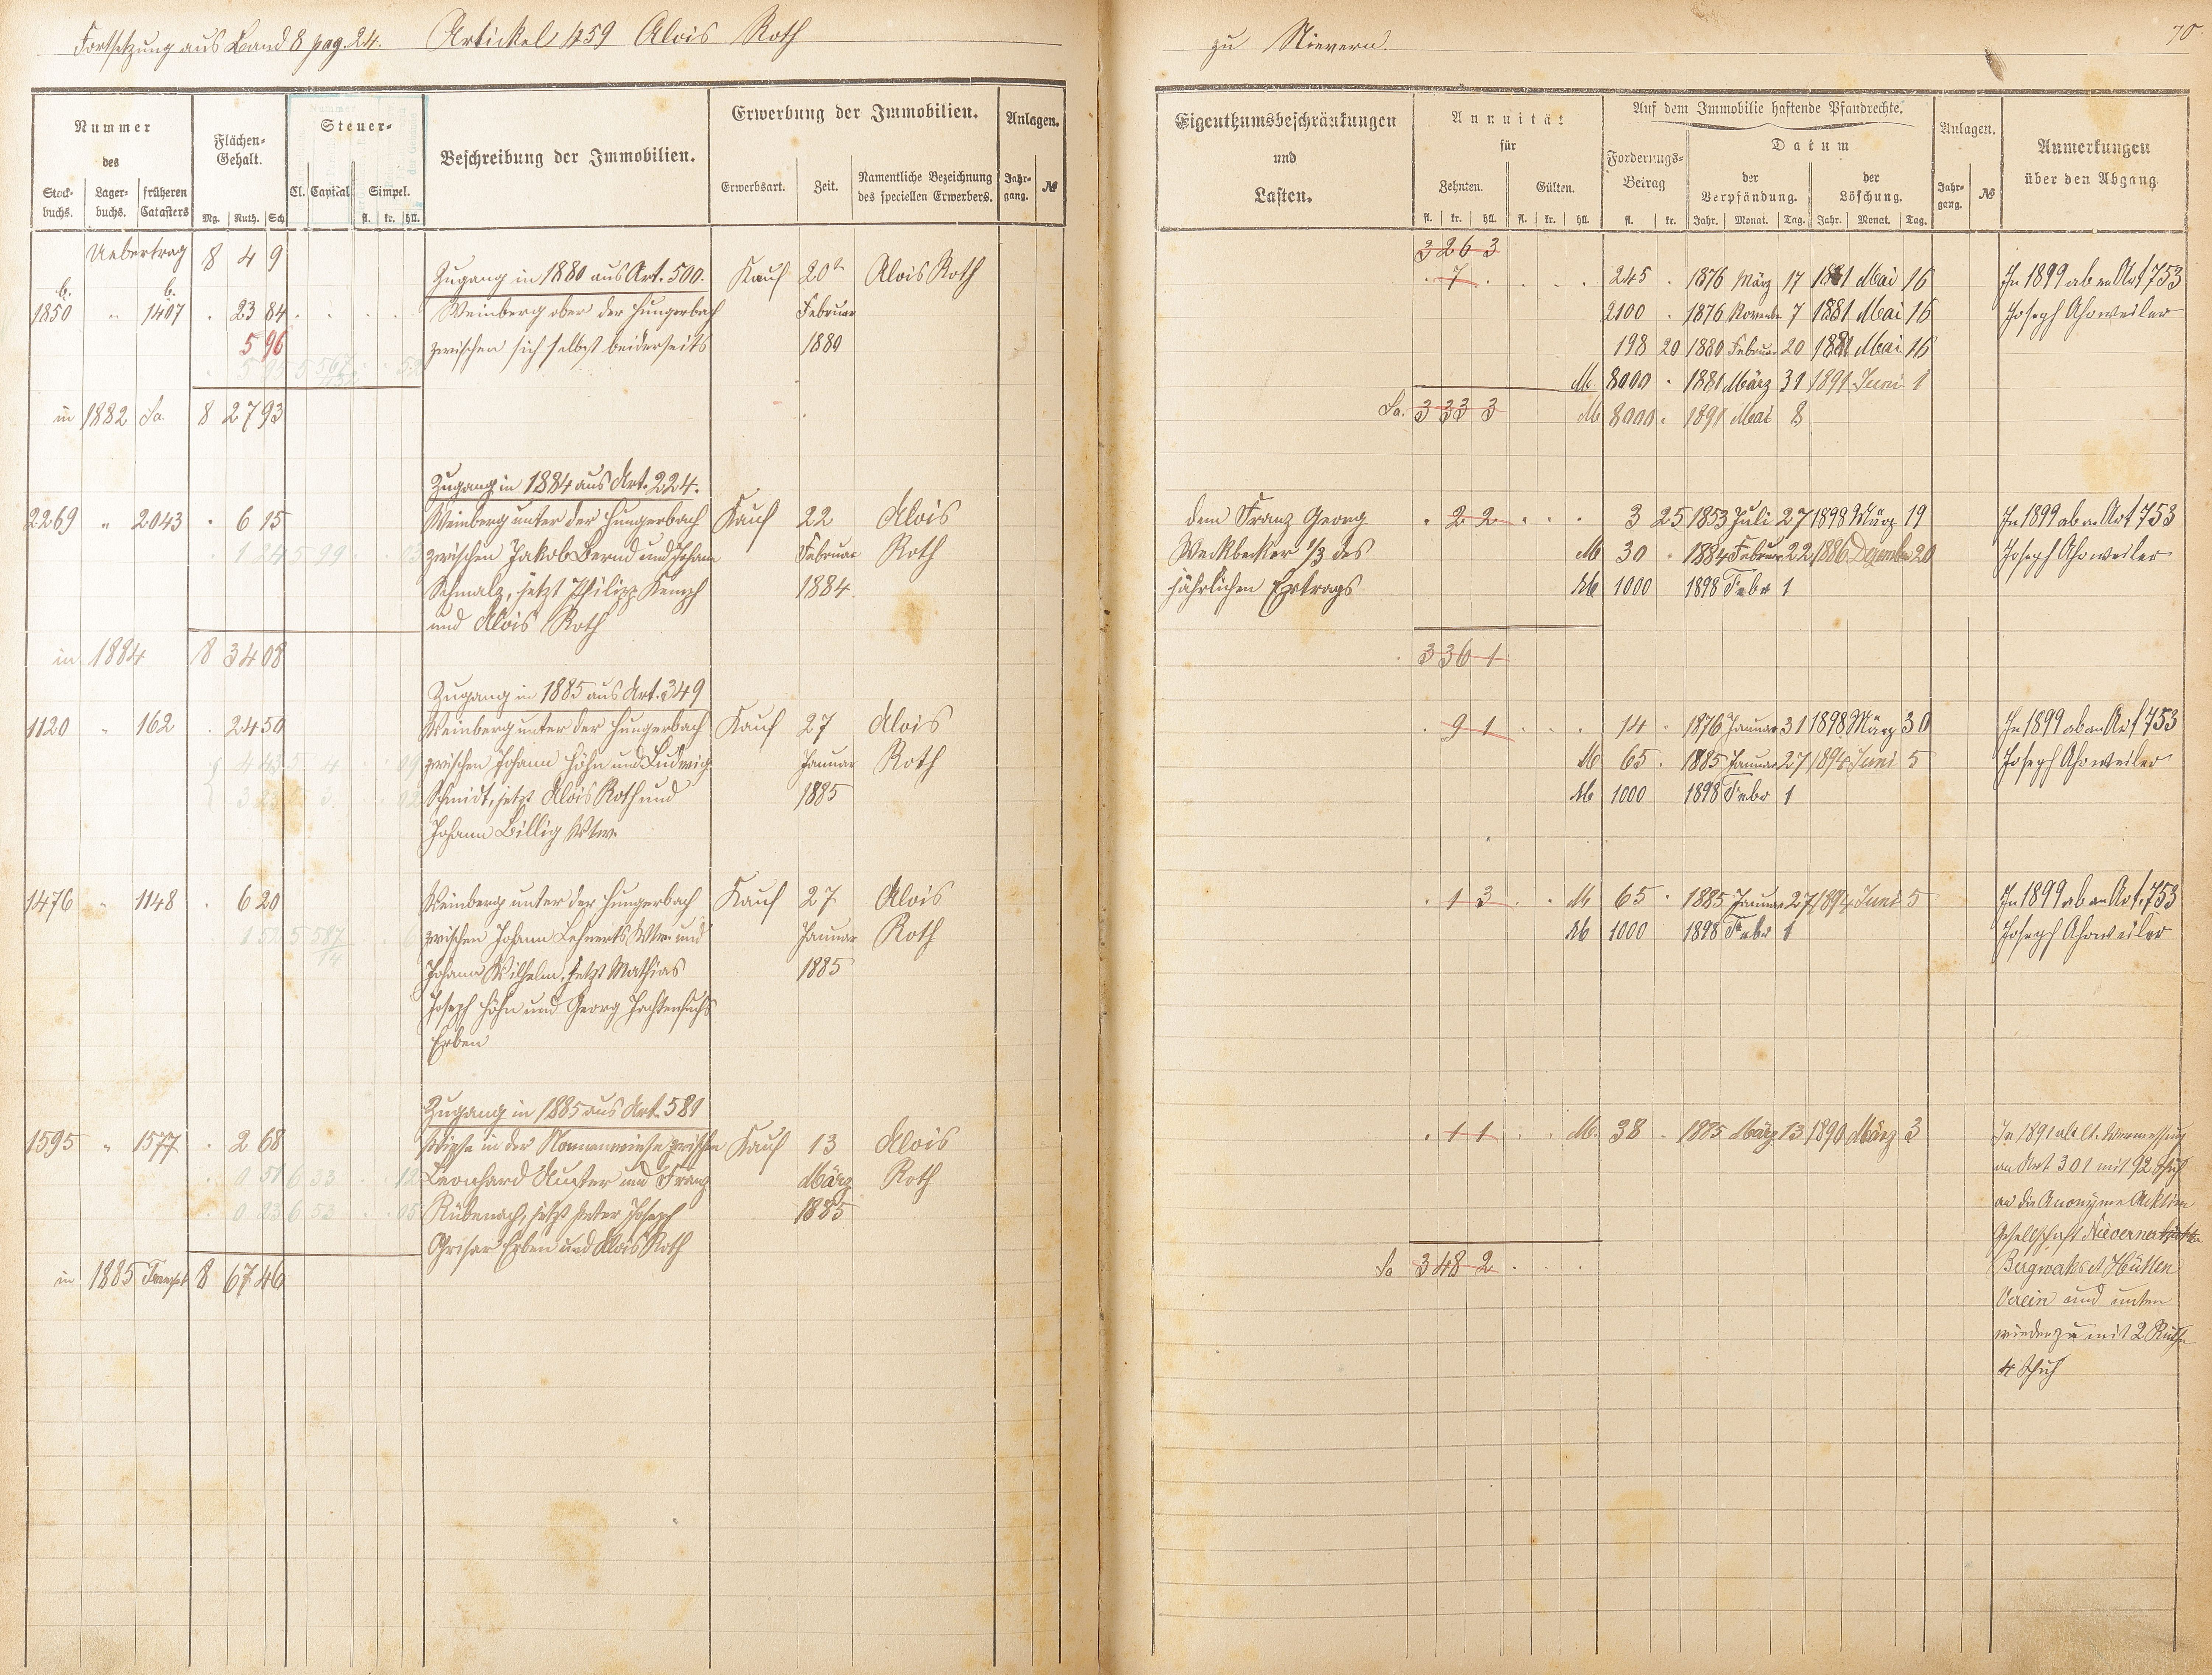 Fortsetzung aus Band 8 pag. 24. Artickel 459 Alois Roth
Nummer
des
Stock-
buchs.
Lager-
buchs.
früheren
Catasters
Flächen-
Gehalt.
Mg. Ruth. Sch.
Steuer-
Cl. Capital Simpel.
fl. kr. hll.
Beschreibung der Immobilien.
Erwerbung der Immobilien.
Erwerbsart. Zeit.
Namentliche Bezeichnung
des speciellen Erwerbers.
Anlagen.
Jahr-
gang.
№
Uebertrag 8 4 9
Zugang in 1880 aus Art. 500. Kauf 20t Alois Roth
b. b.
1850 " 1407 . 23 84 Weinberg ober der Hungerbach Februar
5 96 zwischen sich selbst beiderseits 1880
in 1882 Sa. 8 27 93
Zugang in 1884 aus Art. 224.
2269 " 2043 . 6 15 Weinberg unter der Hungerbach Kauf 22 Alois
1 54 5 99 03 zwischen Jakob Bernd und Johann Februar Roth
Schmalz, jetzt Philipp Kemph 1884
und Alois Roth
in 1884 8 34 08
Zugang in 1885 aus Art. 349
1120 " 162 . 24 50 Weinberg unter der Hungerbach Kauf 27 Alois
zwischen Johann Höhn und Ludwig Januar Roth
Schmidt, jetzt Alois Roth und 1885
Johann Billig Wtw.
1476 " 1148 . 6 20 Weinberg unter der Hungerbach Kauf 27 Alois
zwischen Johann Lehnerts Wtw. und Januar Roth
Johann Wilhelm, jetzt Mathias 1885
Joseph Höhn und Georg
Erben
Zugang in 1885 aus Art. 581
1595 " 1577 . 2 68 Wiese in der Nonnenwiese zwischen Kauf 13 Alois
Leonhard und Franz März Roth
Rübenach, jetzt Peter Joseph 1885
Grisar Erben und Alois Roth
in 1885 Transpt 8 67 46
zu Nievern. 70.
Eigenthumsbeschränkungen
und
Lasten.
Annuität
für
Zehnten. Gülten.
fl. kr. hll. fl. kr. hll.
Auf dem Immobilie haftende Pfandrechte.
Forderungs-
Betrag
fl. kr.
Datum
der
Verpfändung.
Jahr. Monat. Tag.
der
Löschung.
Jahr. Monat. Tag.
Anlagen.
Jahr-
gang.
№
Anmerkungen
über den Abgang.
3 26 3
. 7 . 245 . 1876 März 17 1881 Mai 16 In 1899 ab an Art 753
2100 . 1876 November 7 1881 Mai 16 Joseph Ahrweiler
198 20 1880 Februar 20 1881 Mai 16
M 8000 . 1881 März 31 1891 Juni 1
Sa. 3 33 3 M 8000 . 1891 Mai 8
dem Franz Georg . 2 2 3 25 1853 Juli 27 1898 März 19 In 1899 ab an Art 753
Weckbecker 1/3 des M 30 . 1884 Februar 22 1886 Dezember 20 Joseph Ahrweiler
jährlichen Ertrags M 1000 1898 Febr 1
3 36 1
. 9 1 14 . 1876 Januar 31 1898 März 30 In 1899 ab an Art 753
M 65 . 1885 Januar 27 1894 Juni 5 Joseph Ahrweiler
M 1000 1898 Febr 1
. 1 3 M 65 . 1885 Januar 27 1894 Juni 5 In 1899 ab an Art. 753
M 1000 1898 Febr 1 Joseph Ahrweiler
. 1 1 M. 38 . 1885 März 13 1890 März 3 In 1891 ab lt. Vermessung
an Art 301 mit 92 Schuh
an die Anonyme Acktien
Gesellschaft Nieverner
Bergwerks et Hütten
Sa 3 48 2
Verein und unten
wieder zu mit 2 Ruthe
4 Schuh